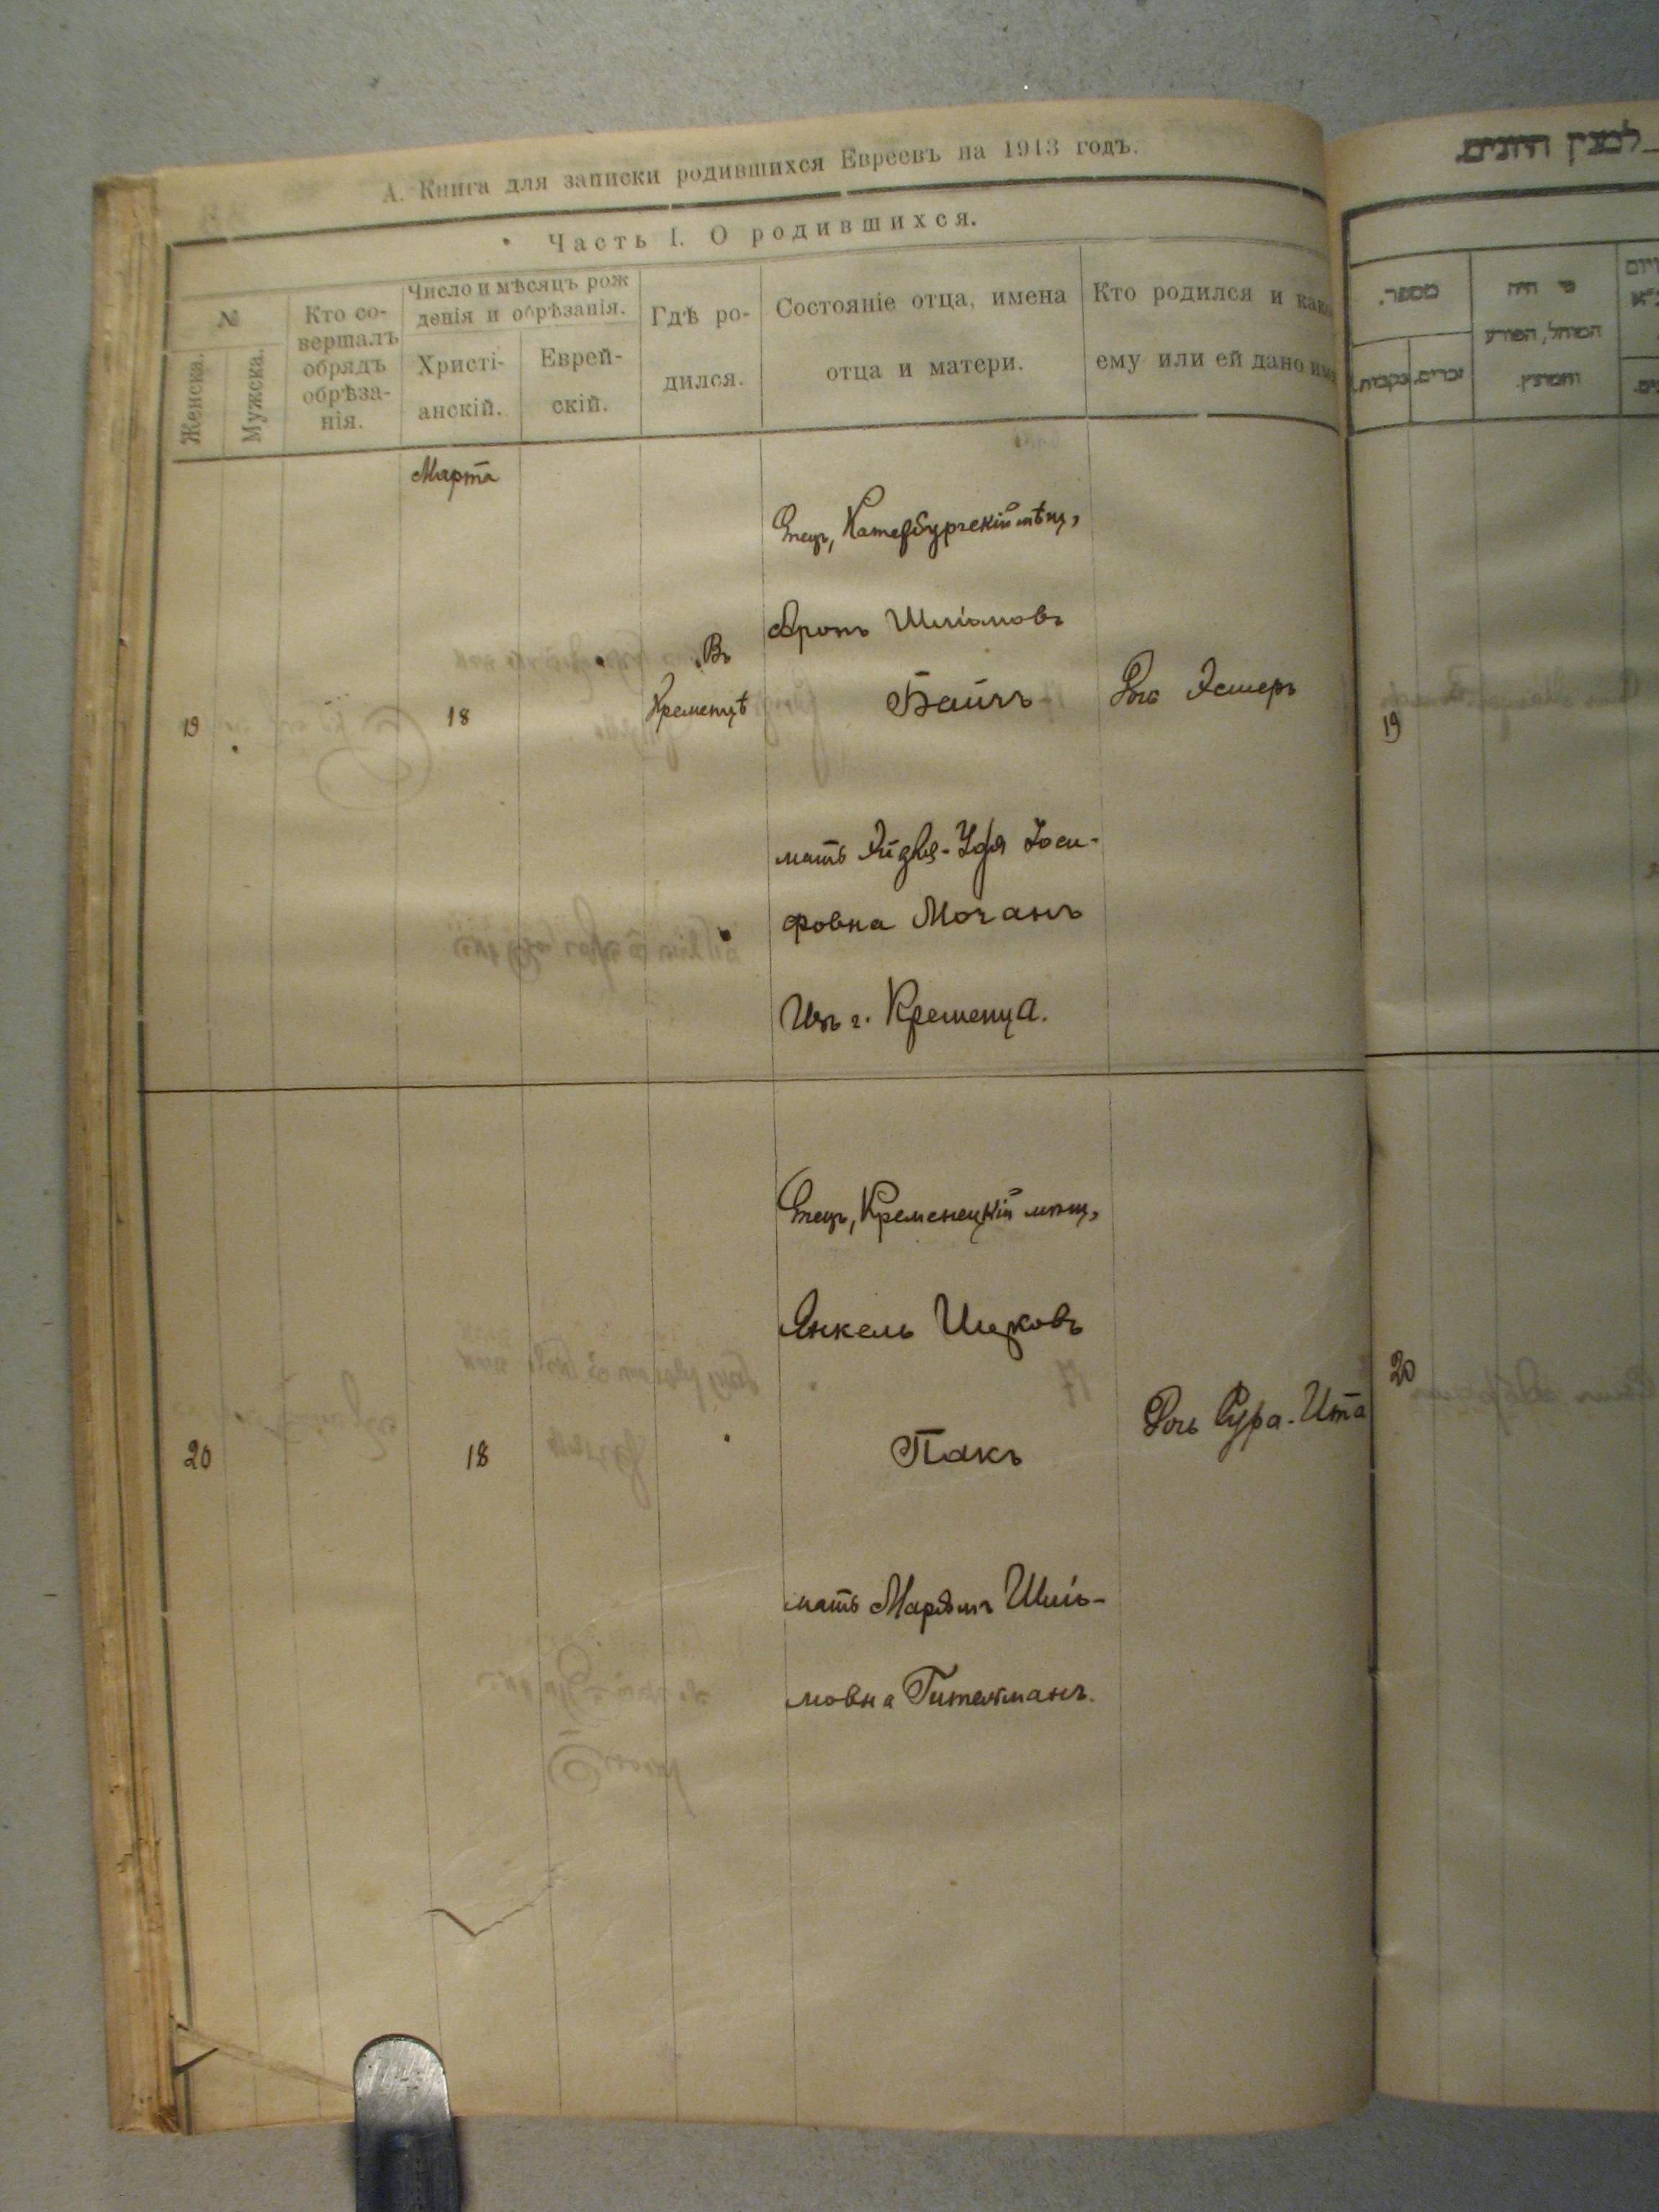 А. Книга для записки родившихся Евреевъ на 1913 годъ.
Часть I. О родившихся.
№
Женска.
Мужска.
Кто со-
вершалъ
обрядъ
обрѣза-
нія.
Число и мѣсяцъ рож
денія и обрѣзанія.
Христі-
анскій.
Еврей-
скій.
Гдѣ ро-
дился.
Состояніе отца, имена
отца и матери.
Кто родился и как
ему или ей дано имя
Марта
19
18
Въ
Кременцѣ
Отецъ, Катербургскій мѣщ,
Аронъ Шліомовъ
Байчъ
мать Эйдля-Удя Іоси-
фовна Мочанъ
Изъ г. Кременца.
Дочь Эстеръ
20
18
Отецъ, Кременецкій мѣщ,
Янкель Ицковъ
Пакъ
мать Марьямъ Шмі-
мовна Гительманъ.
Дочь Сура-Ита
מספר.
זכרים.
נקבות.
מי היה
המוהל, הפורע
והמוצץ.
19
20